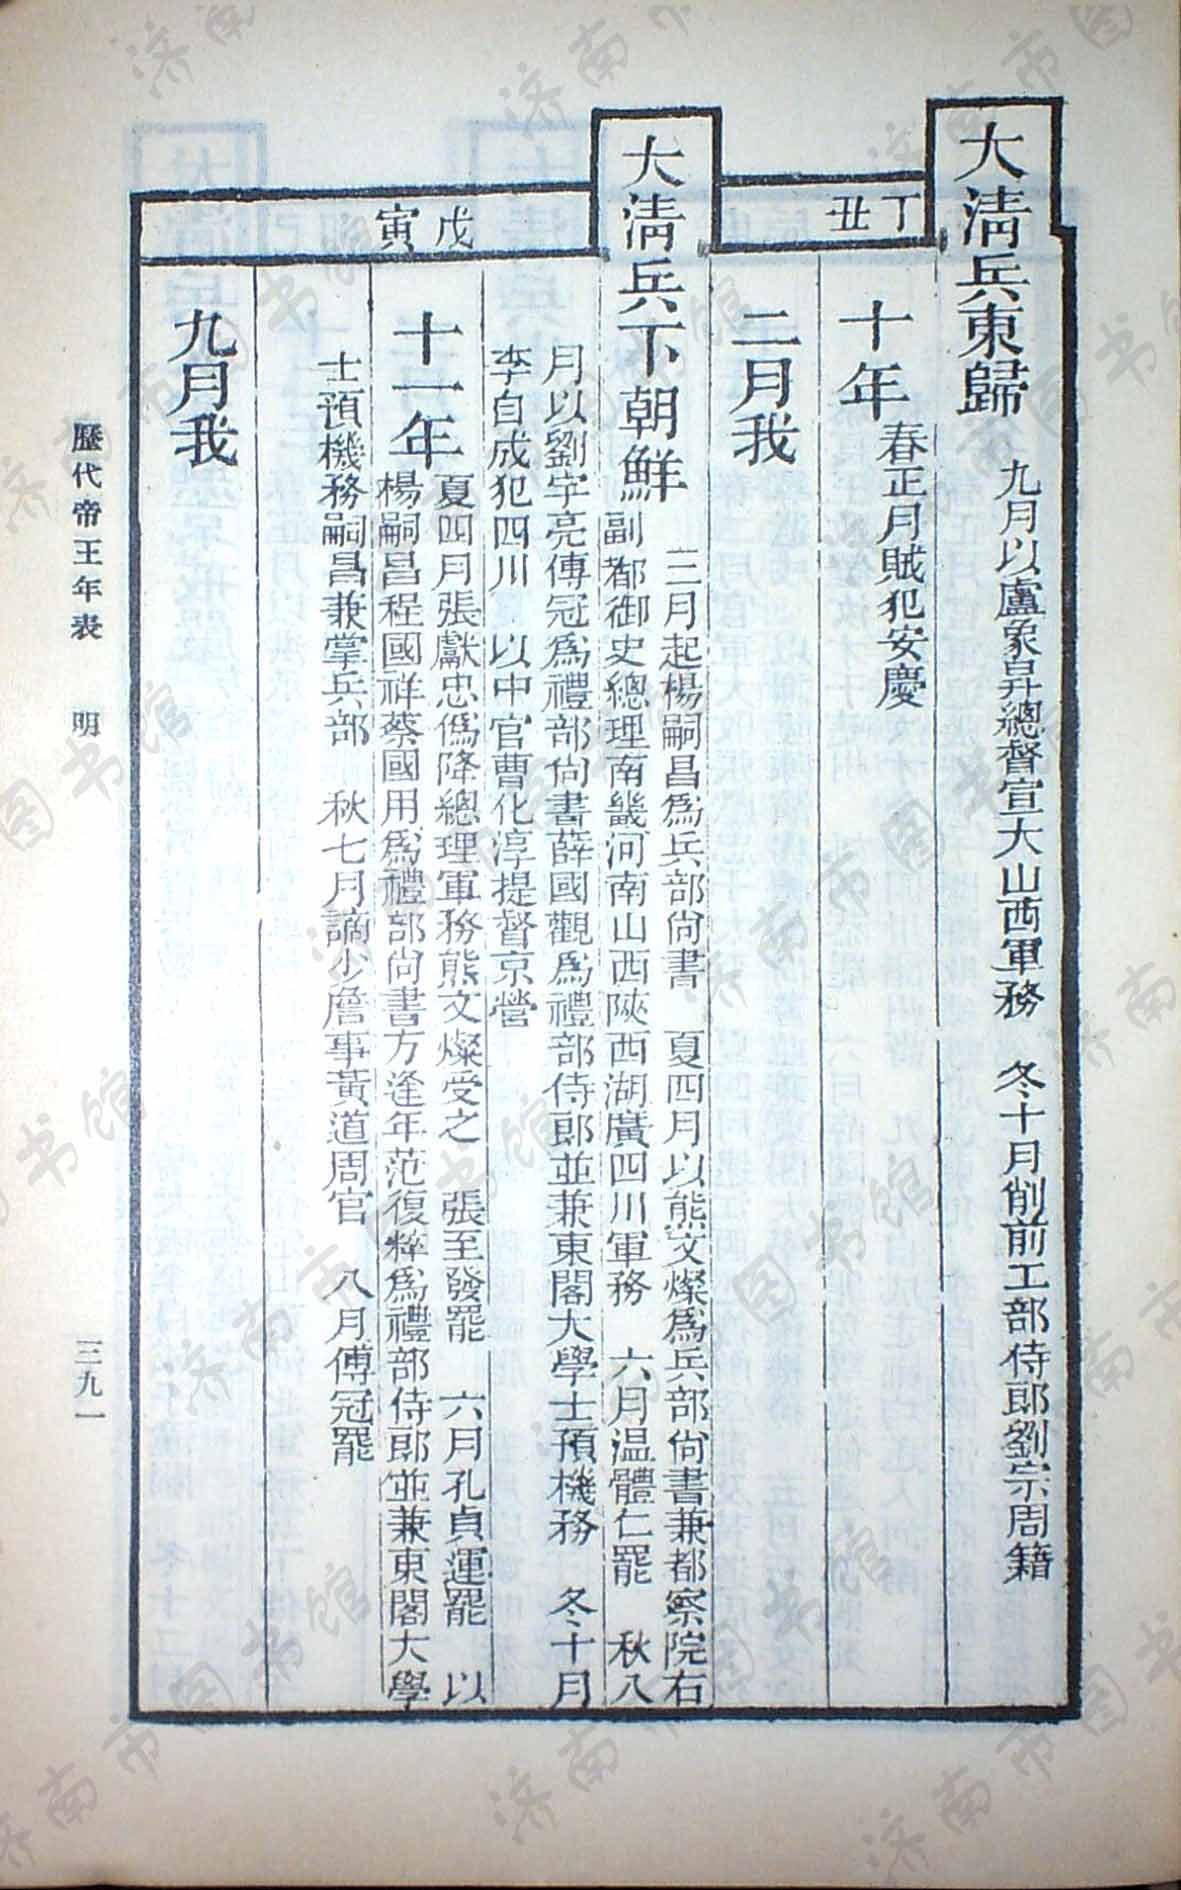 大清兵東歸
九月以盧象昇總督宣大山西軍務　冬十月削前工部侍郎劉宗周籍
丁丑
十年
春正月賊犯安慶
二月我
大清兵下朝鮮
三月起楊嗣昌爲兵部尚書　夏四月以熊文燦爲兵部尚書兼都察院右
副都御史總理南畿河南山西陝西湖廣四川軍務　六月温體仁罷　秋八
月以劉宇亮傅冠爲禮部尚書薛國觀爲禮部侍郎並兼東閣大學士預機務　冬十月
李自成犯四川　以中官曹化淳提督京營
戊寅
十一年
夏四月張獻忠僞降總理軍務熊文燦受之　張至發罷　六月孔貞運罷　以
楊嗣昌程國祥蔡國用爲禮部尚書方逢年范復粹爲禮部侍郎並兼東閣大學
士預機務嗣昌兼掌兵部　秋七月謫少詹事黃道周官　八月傅冠罷
九月我
歷代帝王年表　明　三九一
濟南市图书馆